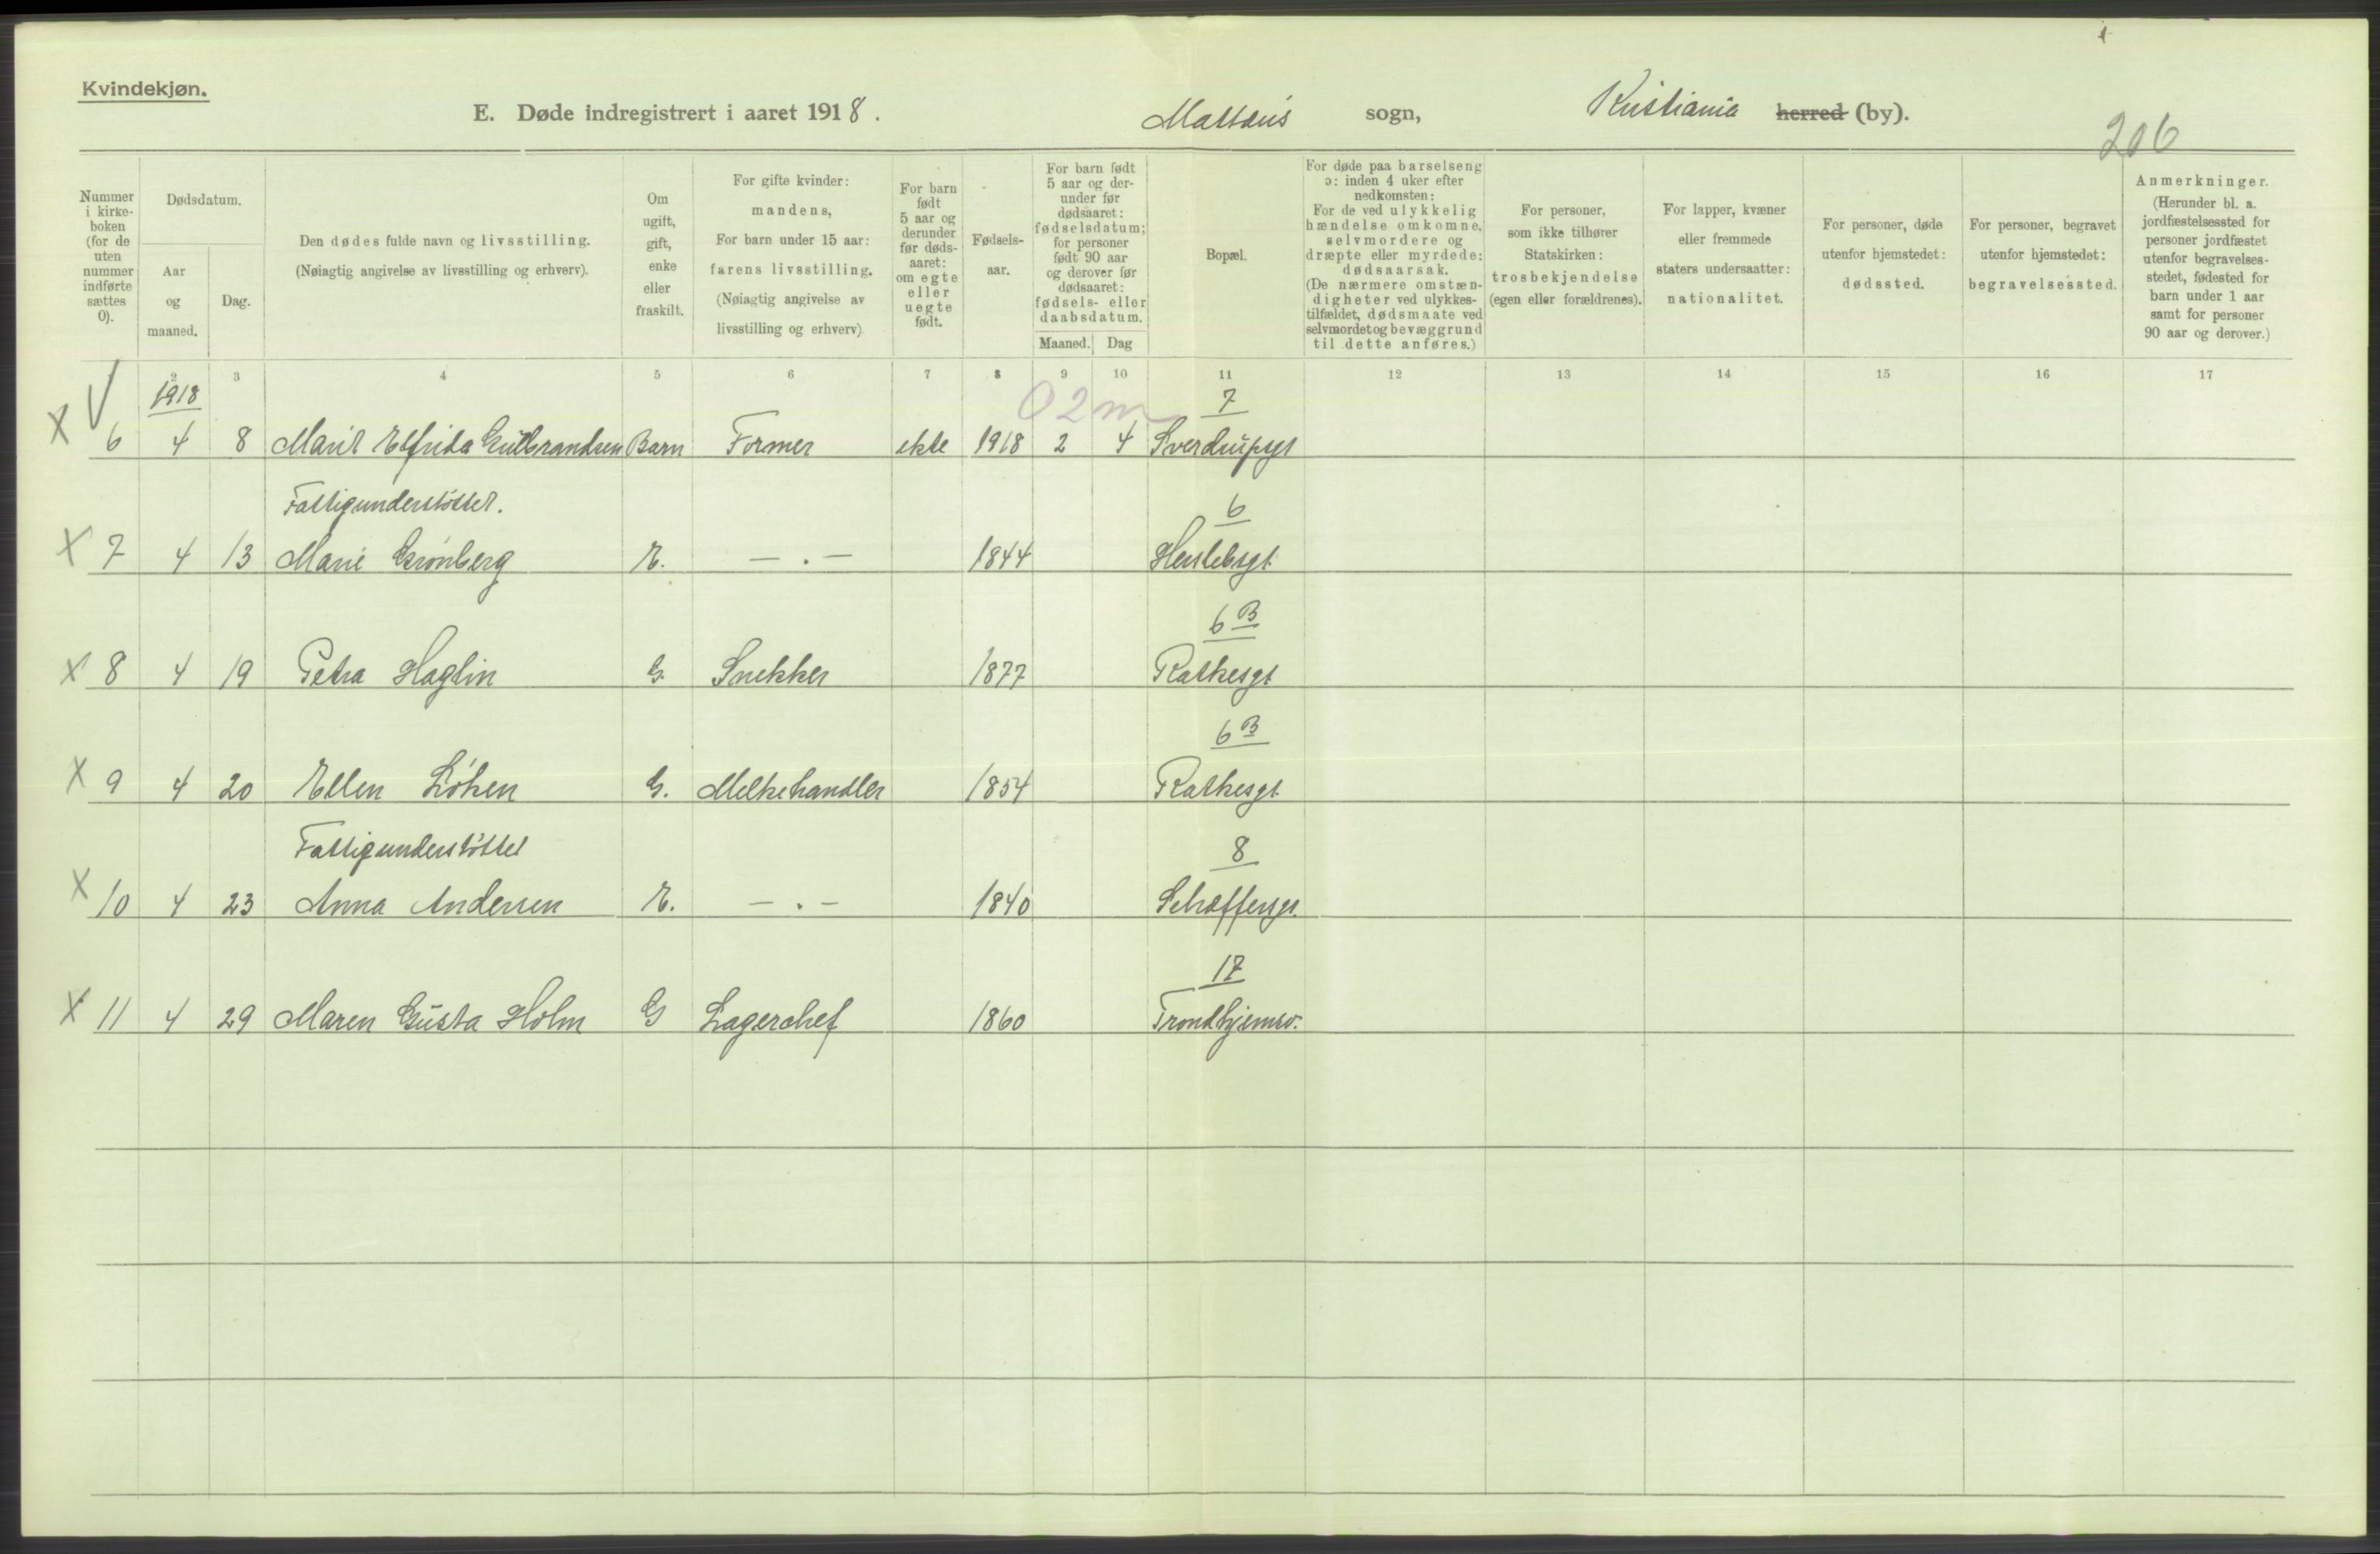 Kvindekjøn.
E. Døde indregistrert i aaret 1918. Mattæus sogn, Kristiania herred (by).
206
Nummer i kirke- boken (for de uten nummer indførte sættes 0).
Dødsdatum.
Aar og maaned.
Dag.
Den dødes fulde navn og livsstilling.
(Nøiagtig angivelse av livsstilling og erhverv).
Om ugift, gift, enke eller fraskilt.
For gifte kvinder: mandens, For barn under 15 aar: farens livsstilling. (Nøiagtig angivelse av livsstilling og erhverv)
For barn født 5 aar og derunder før døds- aaret: om egte eller uegte født.
Fødsels- aar.
For barn født 5 aar og der- under før dødsaaret: fødselsdatum; for personer født 90 aar og derover før dødsaaret: fødsels- eller daabsdatum.
Maaned. Dag
Bopæl.
For døde paa barselseng ɔ: inden 4 uker efter nedkomsten: For de ved ulykkelig hændelse omkomne, selvmordere og dræpte eller myrdede: dødsaarsak. (De nærmere omstæn- digheter ved ulykkes- tilfældet, dødsmaate ved selvmordet og bevæggrund til dette anføres.)
For personer, som ikke tilhører Statskirken: trosbekjendelse (egen eller forældrenes).
For lapper, kvæner eller fremmede staters undersaatter: nationalitet.
For personer, døde utenfor hjemstedet: dødssted.
For personer, begravet utenfor hjemstedet: begravelsessted.
Anmerkninger. (Herunder bl. a. jordfæstelsessted for personer jordfæstet utenfor begravelses- stedet, fødested for barn under 1 aar samt for personer 90 aar og derover.)
2 3 4 5 6 7 8 9 10 11 12 13 14 15 16 17
1918 0 2 m 7
X 6 4 8 Marit Elfrida Gulbrandsen Barn Former ekte 1918 2 4 Sverdrupsgt
Fattigunderstöttet. 6
X 7 4 13 Marie Grönberg E. — . — 1844 Herslebsgt.
6 B
X 8 4 19 Petra Haglin G. Snekker 1877 Rathkesgt
6 B
X 9 4 20 Ellen Löken G. Melkehandler 1854 Rathkesgt.
Fattigunderstöttet 8
X 10 4 23 Anna Andersen E. — . — 1840 Schæffersgt.
17
X 11 4 29 Maren Gusta Holm G Lagerchef 1860 Trondhjemsv.